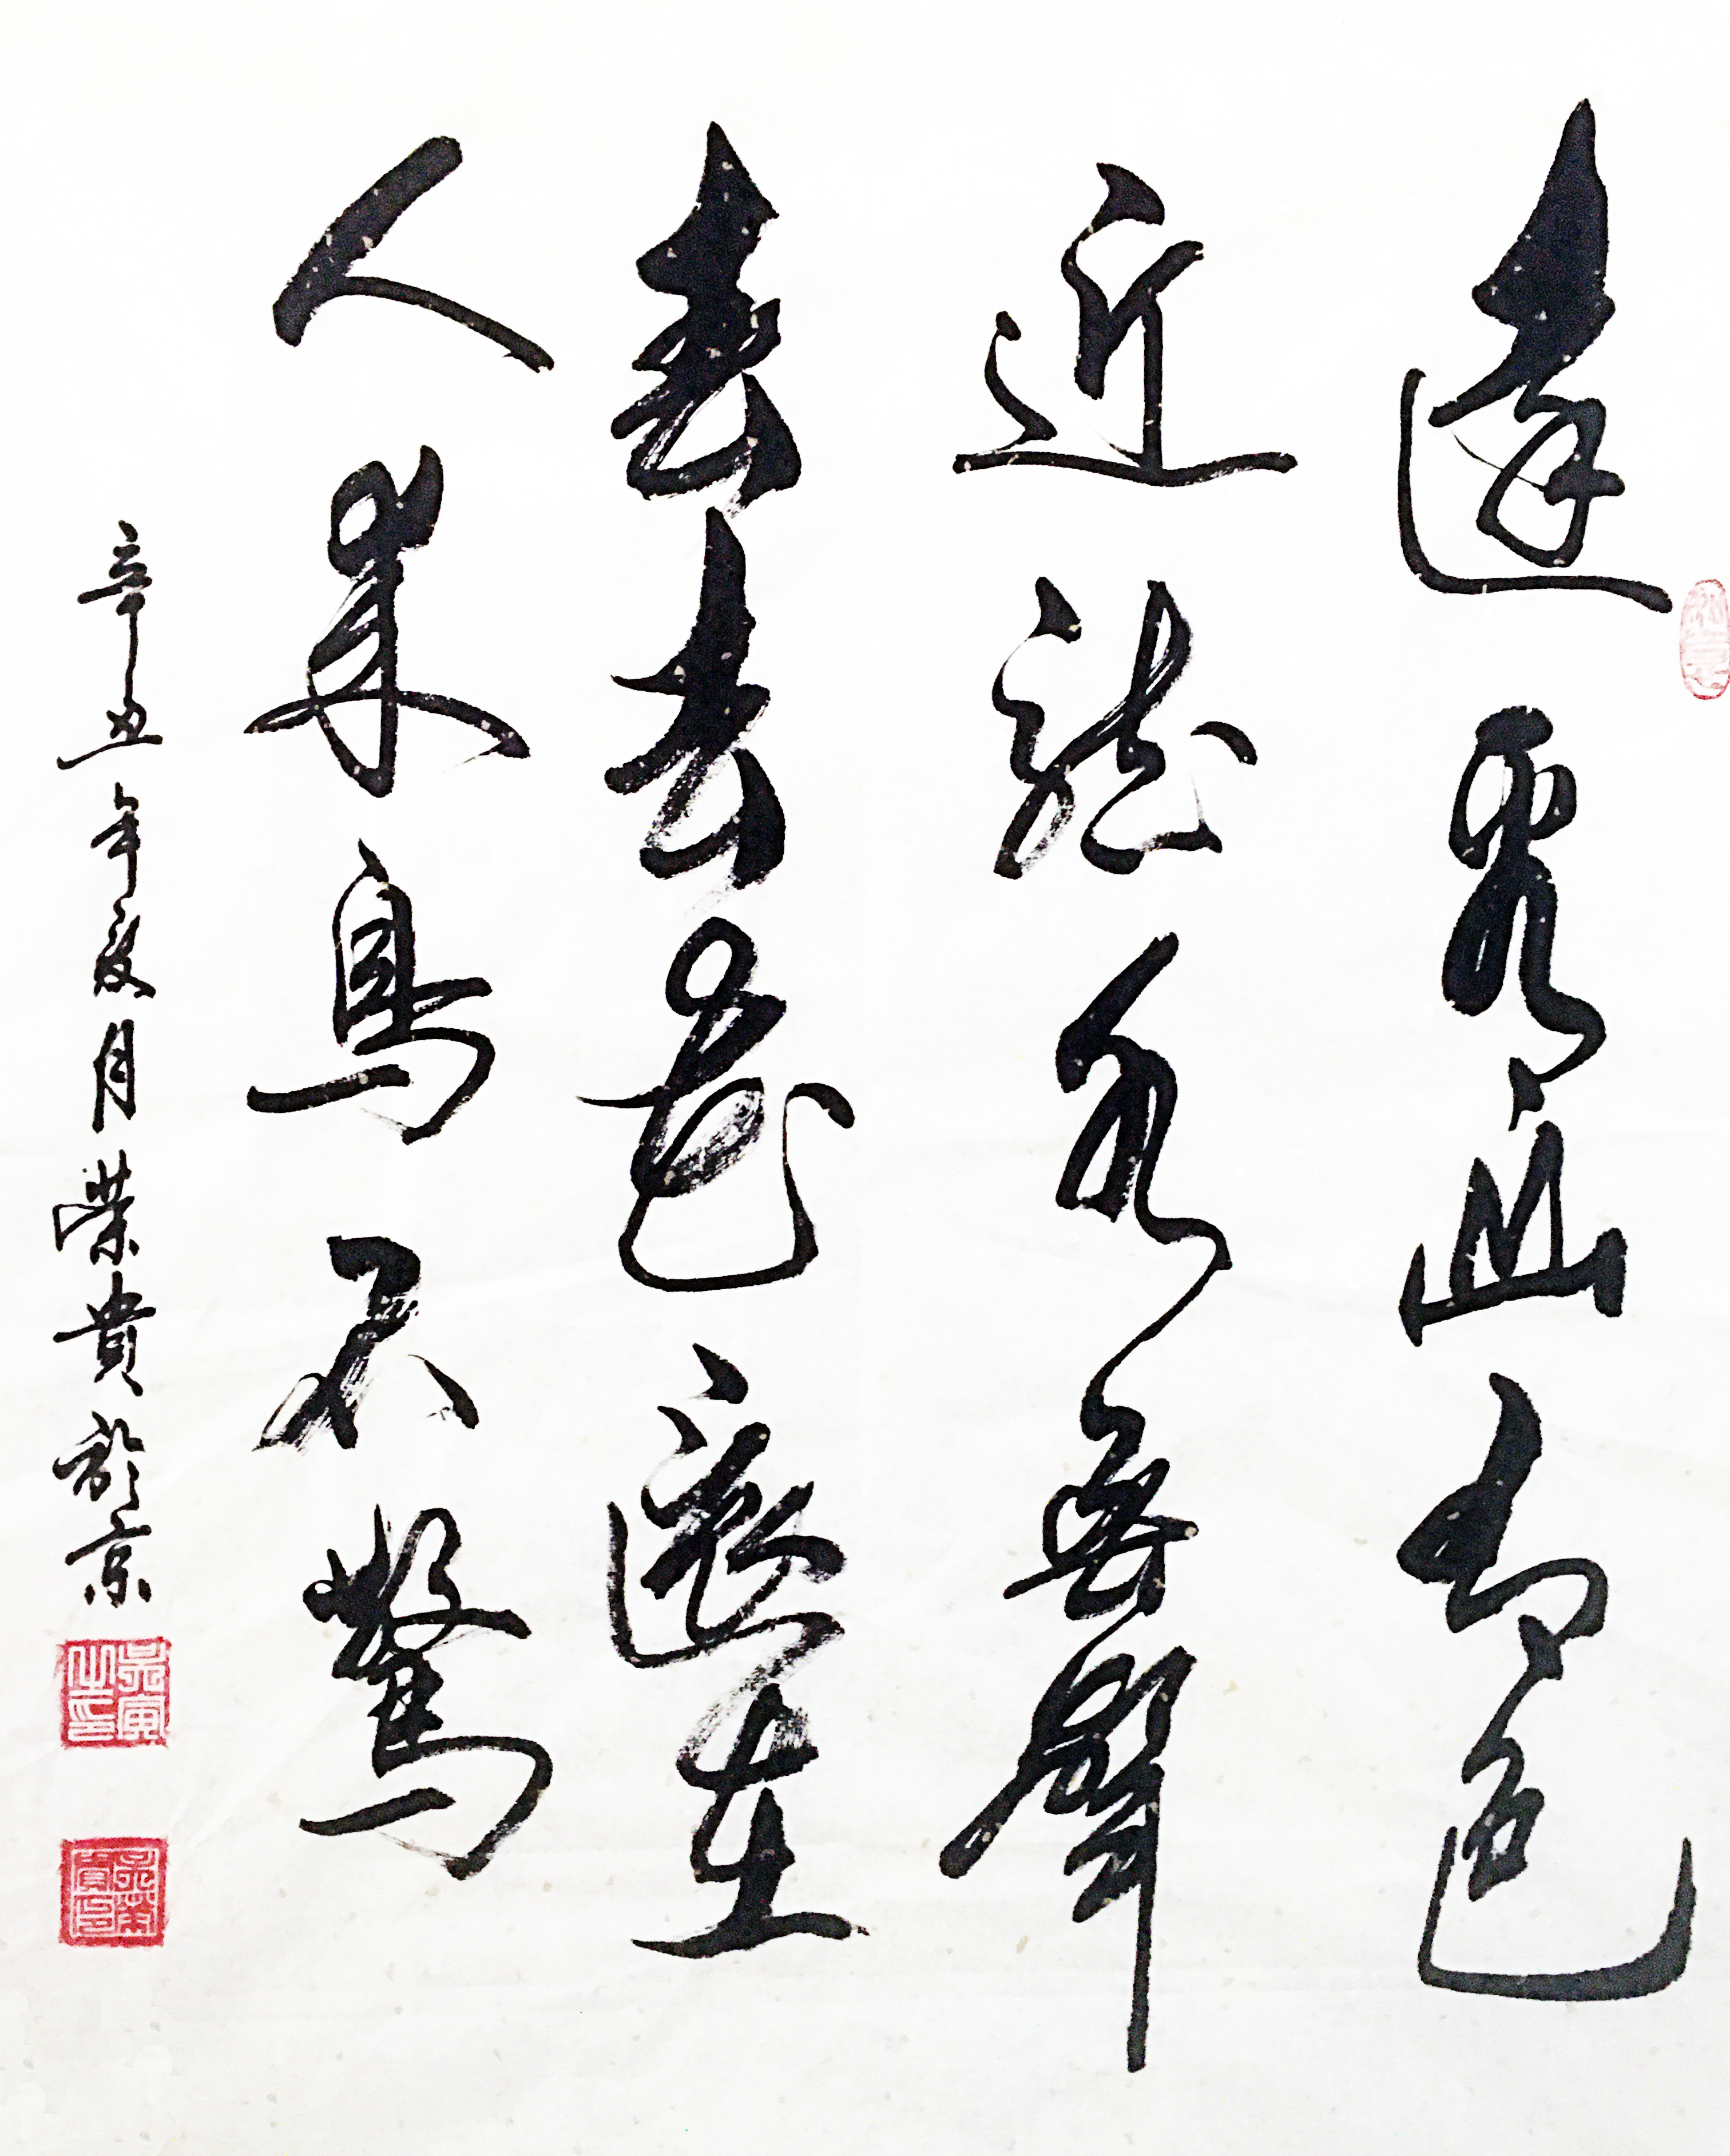 遠看山有色
近聽水無聲
春去花還在
人來鳥不驚
辛丑年夏月榮貴於京